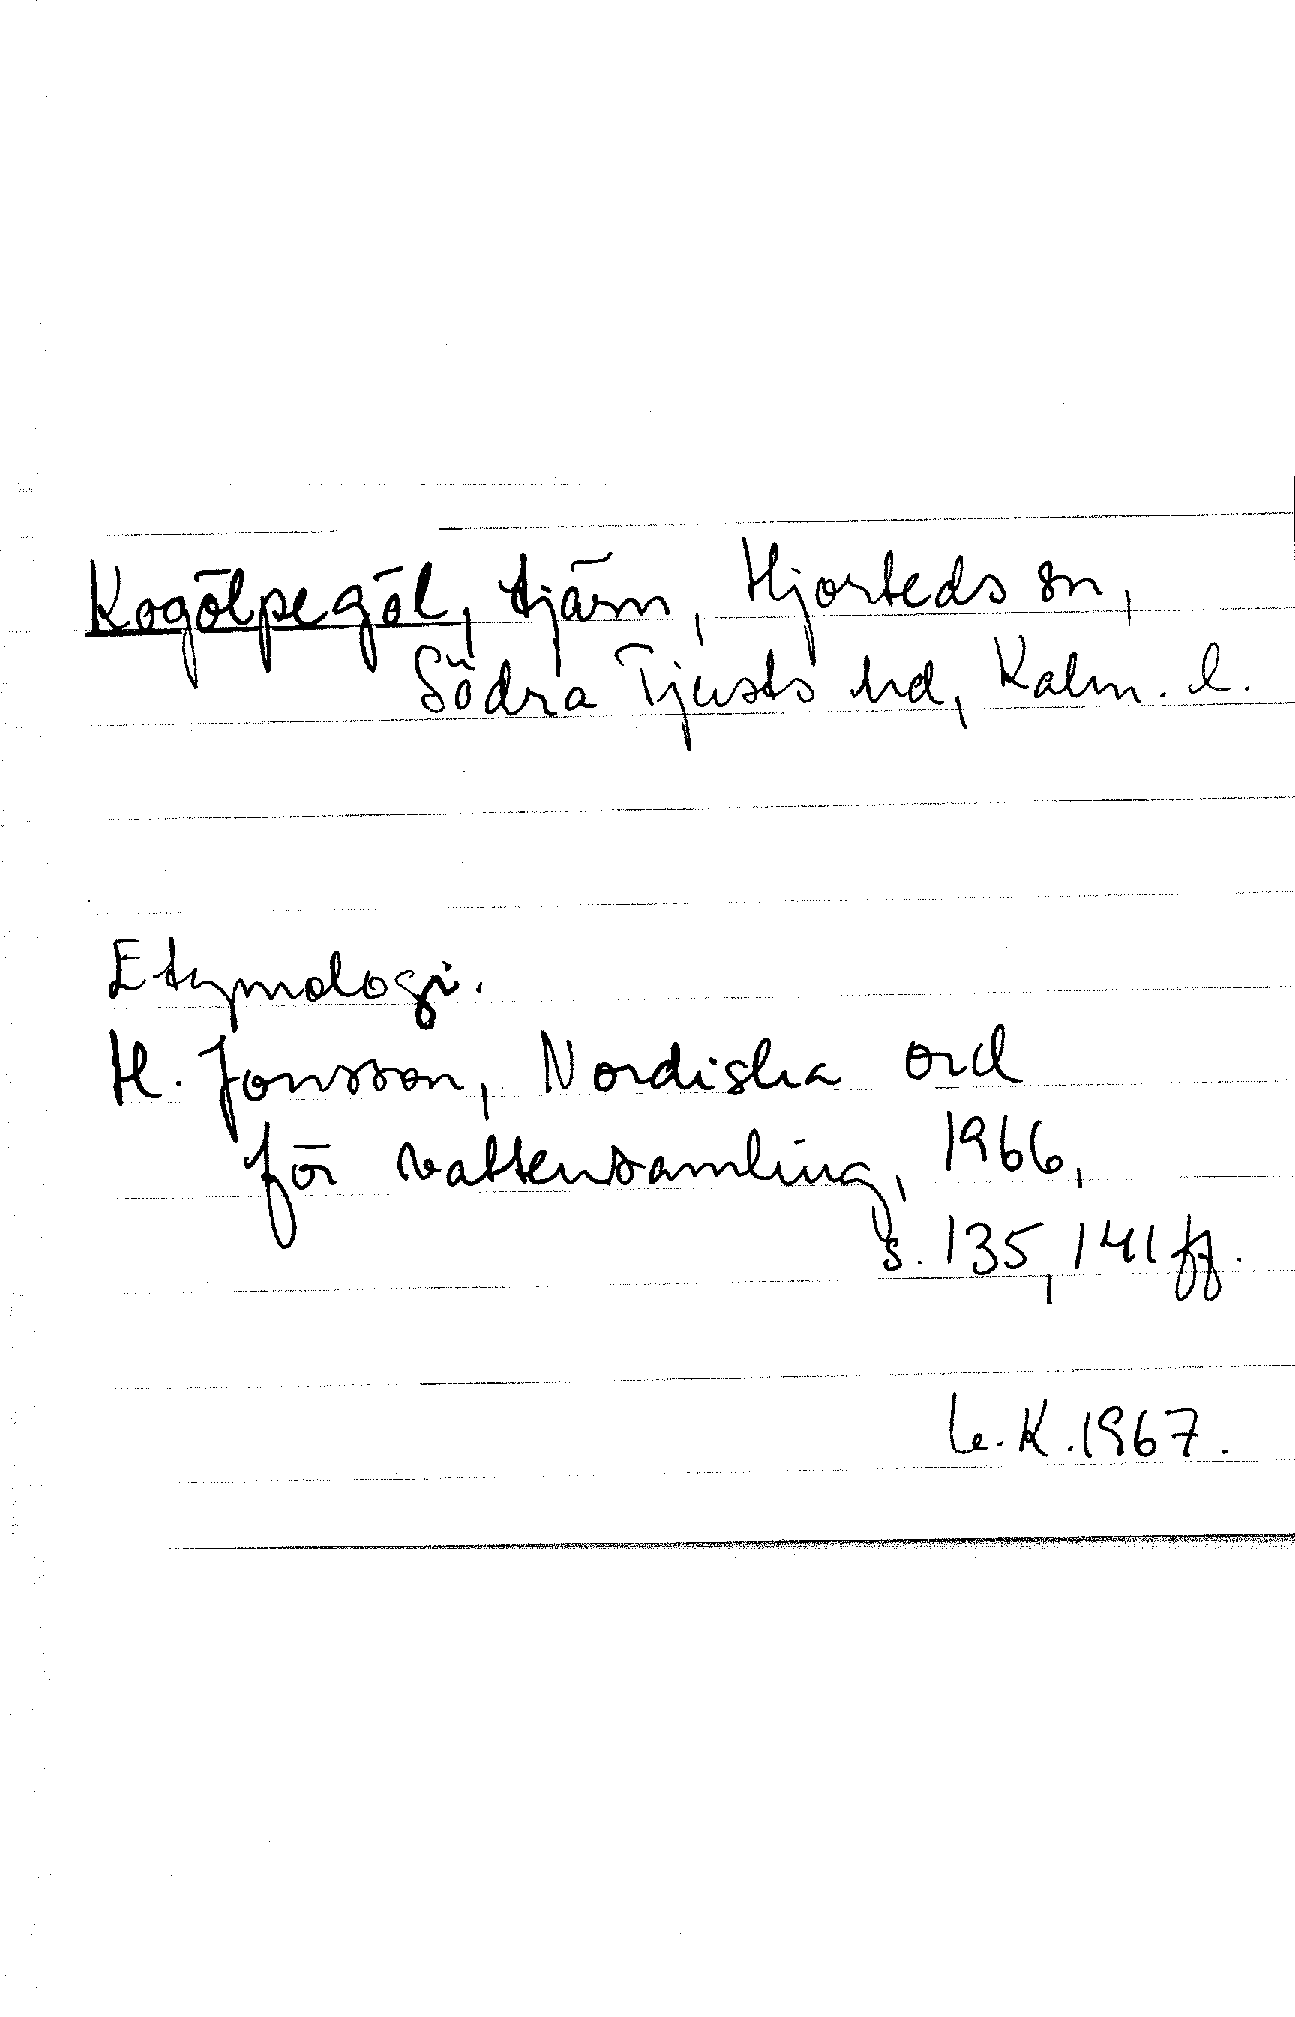 Kogölpegöl, tjärn, Hjorteds sn,
Södra Tjusts hd, Kalm. l.
Etymologi.
H. Jonsson, Nordiska ord
för vattensamling, 1966,
s. 135, 141 ff.
K. 1967.